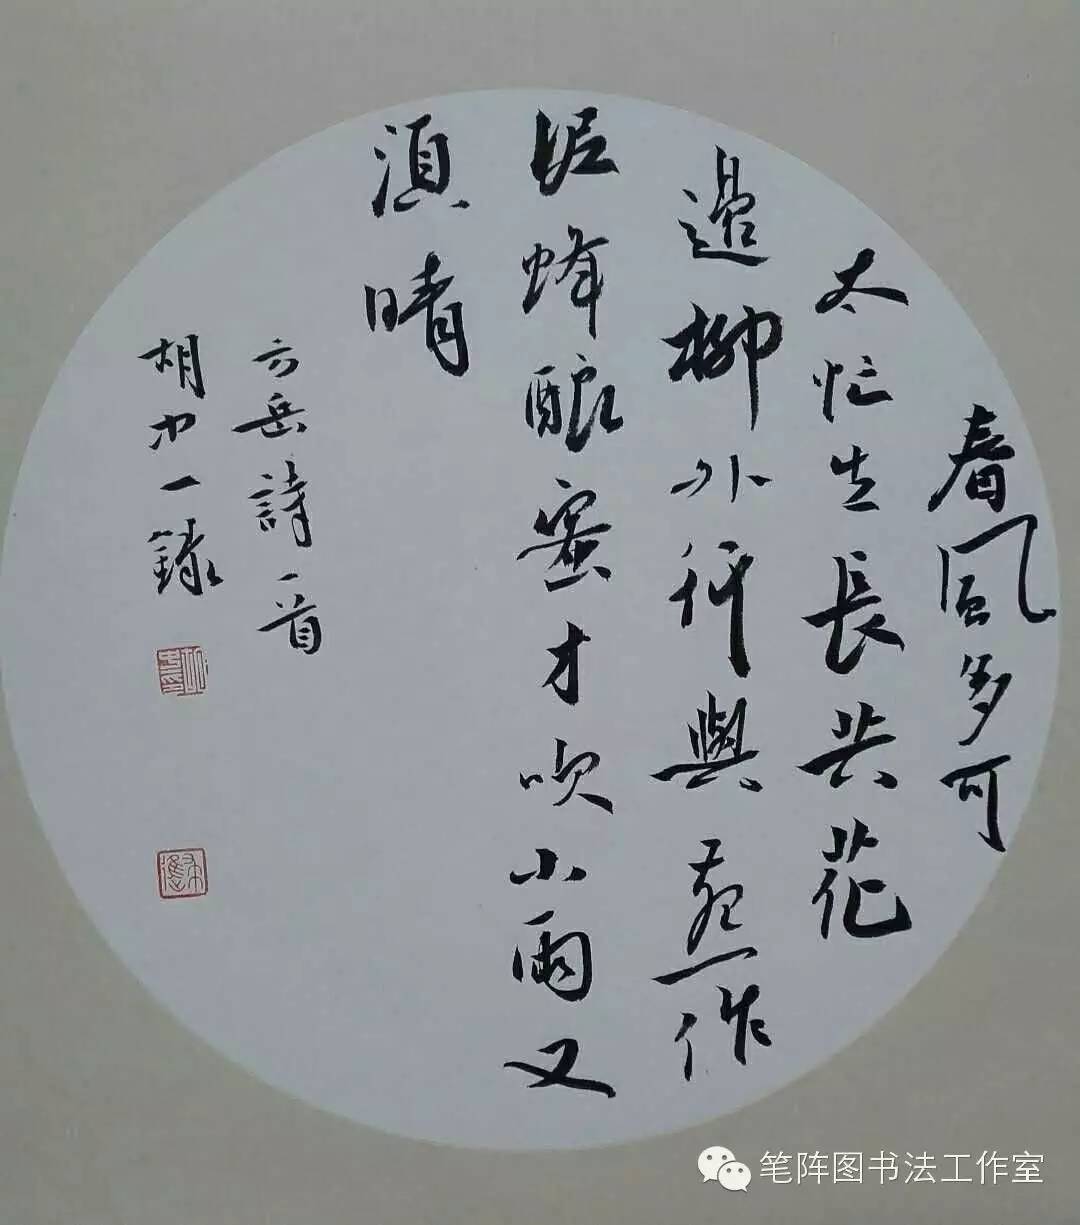 春風多可
太忙生長共花
邊柳外行與燕作
泥蜂酿蜜才吹小雨又
湏晴
方岳詩一首
胡一錄
笔阵图书法工作室